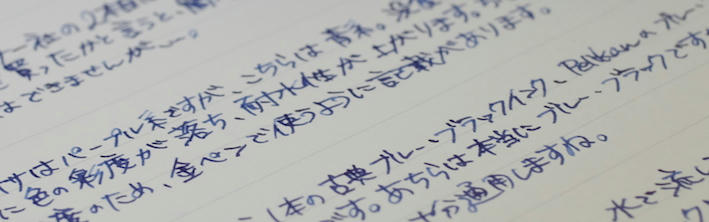 社の2本目
買ったかと言うと
はできませんが…。
はパープル系ですが、こちらは青系。
に色の彩度が落ち、耐水性が上がります。
度のため、金ペンで使うように記載があります。
本の古典ブルーブラックインク、Pelikanのブルー
です。あちらは本当にブルーブラックですが
通用しますね。
水で流し